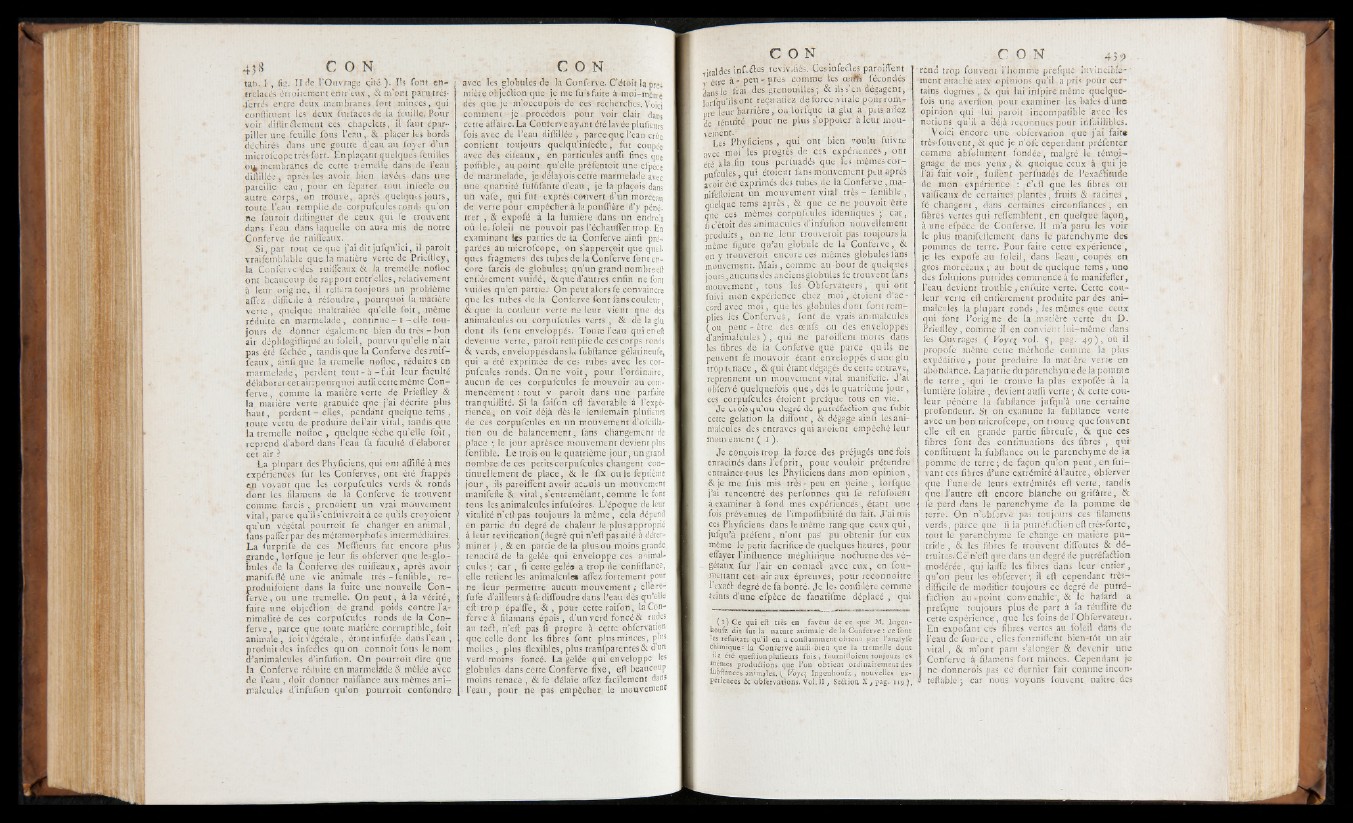 438 CON
tab. I, fig. II de l'Ouvrage cité). Ils sont en-
trelacés étroitement entr'eux, & m'ont paru très-
serrés entre deux membranes fort minces, qui
constituent les deux surfaces de la feuille. Pour
voir distinctement ces chapelets, il faut épar-
piller une feuille sous l'eau, & placer les bords
déchirés dans une goutte d'eau au foyer d'un
microscope très fort. En plaçant quelques feuilles
ou membranes de cette tremelle dans de l'eau
distillée, après les avoir bien lavées dans une
pareille eau, pour en séparer tout insecte ou
autre corps, on trouve, après quelques jours,
toute l'eau remplie de corpuscules ronds qu'on
ne sauroit distinguer de ceux qui se trouvent
dans l'eau dans laquelle on aura mis de notre
Conferve de ruisseaux.
Si, par tout ce que j'ai dit jusqu'ici, il paroît
vraisemblable que la matière verte de Priestley,
la Conferve des ruisseaux & la tremelle nostoc
ont beaucoup de rapport entr'elles, relativement
à leur origine, il restera toujours un problême
assez difficile à résoudre, pourquoi la matière
verte, quelque maltraitée qu'elle soit, même
réduite en marmelade, continue-t-elle tou-
jours de donner également bien du très-bon
air déphlogistiqué au soleil, pourvu qu'elle n'ait
pas été séchée, tandis que la Conferve des ruis-
seaux, ainsi que la tremelle nostoc, réduites en
marmelade, perdent tout-à-fait leur faculté
d'élaborer cet air; pourquoi aussi cette même Con-
ferve, comme la matière verte de Priestley &
la matière verte granulée que j'ai décrite plus
haut, perdent-elles, pendant quelque tems,
toute vertu de produire de l'air vital, tandis que
la tremelle nostoc, quelque sèche qu'elle soit,
reprend d'abord dans l'eau sa faculté d'élaborer
cet air?
La plupart des Physiciens, qui ont assisté à mes
expériences sur les Conferves, ont été frappés
en voyant que les corpuscules verds & ronds
dont les filamens de la Conferve se trouvent
comme farcis, prenoient un vrai mouvement
vital, parce qu'il s'ensuivroit à ce qu'ils croyoient
qu'un végétal pourroit se changer en animal,
sans passer par des métamorphoses intermédiaires.
La surprise de ces Messieurs fut encore plus
grande, lorsque je leur fis observer que les glo-
bules de la Conferve des ruisseaux, après avoir
manifesté une vie animale très-sensible, re-
produisoient dans la suite une nouvelle Con-
ferve, ou une tremelle. On peut, à la vérité,
faire une objection de grand poids contre l'a-
nimalité de ces corpuscules ronds de la Con-
ferve, parce que toute matière corruptible, soit
animale, soit végétale, étant infusée dans l'eau,
produit des insectes qu'on connoît sous le nom
d'animalcules d'infusion. On pourroit dire que
la Conferve réduite en marmelade & mêlée avec
de l'eau, doit donner naissance aux mêmes ani-
malcules d'infusion qu'on pourroit confondre
CON
avec les globules de la Conferve. C'étoit la pre-
mière objection que je me suis faite à moi-même
dès que je m'occupois de ces recherches. Voici
comment je procédois pour voir clair dans
cette affaire. La Conferve ayant été lavée plusieurs
fois avec de l'eau distillée, parce que l'eau crûe
contient toujours quelqu'insecte, fut coupée
avec des ciseaux, en particules aussi fines que
possible, au point qu'elle présentoit une espèce
de marmelade, je délayois cette marmelade avec
une quantité suffisante d'eau, je la plaçois dans
un vase, qui fut exprès couvert d'un morceau
de verre pour empêcher à la poussière d'y péné-
trer, & exposé à la lumière dans un endroit
où le soleil ne pouvoit pas l'échauffer trop. En
examinant les parties de la Conferve ainsi pré-
parées au microscope, on s'apperçoit que quel-
ques fragmens des tubes de la Conferve sont en-
core farcis de globules; qu'un grand nombre est
entièrement vuidé, & que d'autres enfin ne sont
vuidés qu'en partie. On peut alors se convaincre
que les tubes de la Conferve sont sans couleur,
& que la couleur verte ne leur vient que des
animalcules ou corpuscules verts, & de la glu
dont ils sont enveloppés. Toute l'eau qui en est
devenue verte, paroît remplie de ces corps ronds
& verds, enveloppés dans la substance gélatineuse,
qui a été exprimée de ces tubes avec les cor-
puscules ronds. On ne voit, pour l'ordinaire,
aucun de ces corpuscules se mouvoir au com-
mencement: tout y paroît dans une parfaite
tranquillité. Si la saison est favorable à l'expé-
rience, on voit déjà dès le lendemain plusieurs
de ces corpuscules en un mouvement d'oscilla-
tion ou de balancement, sans changement de
place; le jour après ce mouvement devient plus
sensible. Le trois ou le quatrième jour, un grand
nombre de ces petits corpuscules changent con-
tinuellement de place, & le six ou le septième
jour, ils paroissent avoir acquis un mouvement
manifeste & vital, s'entremêlant, comme le font
tous les animalcules infusoires. L'époque de leur
vitalité n'est pas toujours la même, cela dépend
en partie du degré de chaleur le plus approprié
à leur revification (degré qui n'est pas aisé à déter-
miner), & en partie de la plus ou moins grande
tenacité de la gelée qui enveloppe ces animal-
cules; car, si cette gelée a trop de consistance,
elle retient les animalcules assez fortement pour
ne leur permettre aucun mouvement; elle re-
fuse d'ailleurs à se dissoudre dans l'eau dès qu'elle
est trop épaisse, &, pour cette raison, la Con-
ferve à filamans épais, d'un verd foncé & rudes
au tact, n'est pas si propre à cette observation
que celle dont les fibres sont plus minces, plus
molles, plus flexibles, plus transparentes & d'un
verd moins foncé. La gelée qui enveloppe les
globules dans cette Conferve fixe, est beaucoup
moins tenace, & se délaie assez facilement dans
l'eau, pour ne pas empêcher le mouvement
CON
vital des insectes revivifiés. Ces insectes paroissent
y être à-peu-près comme les œufs fécondés
dans le frai des grenouilles; & ils s'en dégagent,
lorsqu'ils ont reçu assez de force vitale pour rom-
pre leur barrière, ou lorsque la glu a pris assez
de ténuité pour ne plus s'opposer à leur mou-
vement.
Les Physiciens, qui ont bien voulu suivre
avec moi les progrès de ces expériences, ont
été à la fin tous persuadés que les mêmes cor-
puscules, qui étoient sans mouvement peu après
avoir été exprimés des tubes de la Conferve, ma-
nifestoient un mouvement vital très-sensible,
quelque tems après, & que ce ne pouvoit être
que ces mêmes corpuscules identiques; car,
si c'étoit des animalcules d'infusion nouvellement
produits, on ne leur trouveroit pas toujours la
même figure qu'au globule de la Conferve, &
on y trouveroit encore ces mêmes globules sans
mouvement. Mais, comme au bout de quelques
jours, aucuns des anciens globules se trouvent sans
mouvement, tous les Observateurs, qui ont
suivi mon expérience chez moi, étoient d'ac-
cord avec moi, que les globules dont sont rem-
plies les Conferves, sont de vrais animalcules
(ou peut-être des œufs ou des enveloppes
d'animalcules), qui ne paroissent morts dans
les fibres de la Conferve que parce qu'ils ne
peuvent se mouvoir étant enveloppés d'une glu
trop tenace, & qui étant dégagés de cette entrave,
reprennent un mouvement vital manifeste. J'ai
observé quelquefois que, dès le quatrième jour,
ces corpuscules étoient presque tous en vie.
Je crois qu'un degré de putréfaction que subit
cette gelation la dissout, & dégage ainsi les ani-
malcules des entraves qui avoient empêché leur
mouvement (1).
Je conçois trop la force des préjugés une fois
enracinés dans l'esprit, pour vouloir prétendre
entraîner tous les Physiciens dans mon opinion,
& je me suis mis très-peu en peine, lorsque
j'ai rencontré des personnes qui se refusoient
à examiner à fond mes expériences, étant une
fois prévenues de l'impossibilité du fait. J'ai mis
ces Physiciens dans le même rang que ceux qui,
jusqu'à présent, n'ont pas pu obtenir sur eux
même le petit sacrifice de quelques heures, pour
essayer l'influence méphitique nocturne des vé-
gétaux sur l'air en contact avec eux, en sou-
mettant cet air aux épreuves, pour reconnoître
l'exact degré de sa bonté. Je les considère comme
teints d'une espèce de fanatisme déplacé, qui
(1) Ce qui est très en faveur de ce que M. Ingen-
housz dit sur la nature animale de la Conferve: ce sont
les résultats qu'il en a constamment obtenu par l'analyse
chimique. La Conferve aussi-bien que la tremelle dont
il a été question plusieurs fois, fournissoient toujours les
mêmes productions que l'on obtient ordinairement des
substances animales. (Voyez Ingenhousz, nouvelles ex-
périences & observations. Vol. II, Section X, pag. 119).
CON 439
rend trop souvent l'homme presque invincible-
ment attaché aux opinions qu'il a pris pour cer-
tains dogmes, & qui lui inspire même quelque-
fois une aversion pour examiner les bases d'une
opinion qui lui paroît incompatible avec les
notions qu'il a déjà reconnues pour infaillibles.
Voici encore une observation que j'ai faite
très-souvent, & que je n'ose cependant présenter
comme absolument fondée, malgré le témoi-
gnage de mes yeux, & quoique ceux à qui je
l'ai fait voir, fussent persuadés de l'exactitude
de mon expérience: c'est que les fibres ou
vaisseaux de certaines plantes, fruits & racines,
se changent, dans certaines circonstances, en
fibres vertes qui ressemblent, en quelque façon,
à une espèce de Conferve. Il m'a paru les voir
le plus manifestement dans le parenchyme des
pommes de terre. Pour faire cette expérience,
je les expose au soleil, dans l'eau, coupés en
gros morceaux; au bout de quelque tems, une
des solutions putrides commence à se manifester,
l'eau devient trouble, ensuite verte. Cette cou-
leur verte est entièrement produite par des ani-
malcules la plupart ronds, les mêmes que ceux
qui font l'origine de la matière verte du D.
Priestley, comme il en convient lui-même dans
ses Ouvrages (Voyez vol. 5, pag. 49), où il
propose même cette méthode comme la plus
expéditive, pour produire la matière verte en
abondance. La partie du parenchyme de la pomme
de terre, qui se trouve la plus exposée à la
lumière solaire, devient aussi verte; & cette cou-
leur pénètre la substance jusqu'à une certaine
profondeur. Si on examine la substance verte
avec un bon microscope, on trouve que souvent
elle est en grande partie fibreuse, & que ces
fibres sont des continuations des fibres, qui
constituent la substance ou le parenchyme de la
pomme de terre; de façon qu'on peut, en sui-
vant ces fibres d'une extrémité à l'autre, observer
que l'une de leurs extrémités est verte, tandis
que l'autre est encore blanche ou grisâtre, &
se perd dans le parenchyme de la pomme de
terre. On n'observe pas toujours ces filamens
verds, parce que si la putréfaction est très-forte,
tout le parenchyme se change en matière pu-
tride, & les fibres se trouvent dissoutes & dé-
truites. Ce n'est que dans un degré de putréfaction
modérée, qui laisse les fibres dans leur entier,
qu'on peut les observer; il est cependant très-
difficile de modifier toujours ce degré de putré-
faction au-point convenable, & le hasard a
presque toujours plus de part à la réussite de
cette expérience, que les soins de l'Observateur.
En exposant ces fibres vertes au soleil dans de
l'eau de source, elles fournissent bien-tôt un air
vital, & m'ont paru s'alonger & devenir une
Conferve à filamens fort minces. Cependant je
ne donnerois pas ce dernier fait comme incon-
testable; car nous voyons souvent naître des